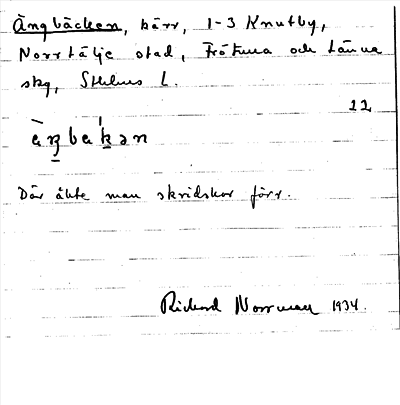 Ängbäcken, kärr, 1-3 Knutby,
Norrtälje stad, Frötuna och Länna
skg, Sthlms L.
22
àŋbakən
Där åkte man skridskor förr.
Rickard Norrman 1934.